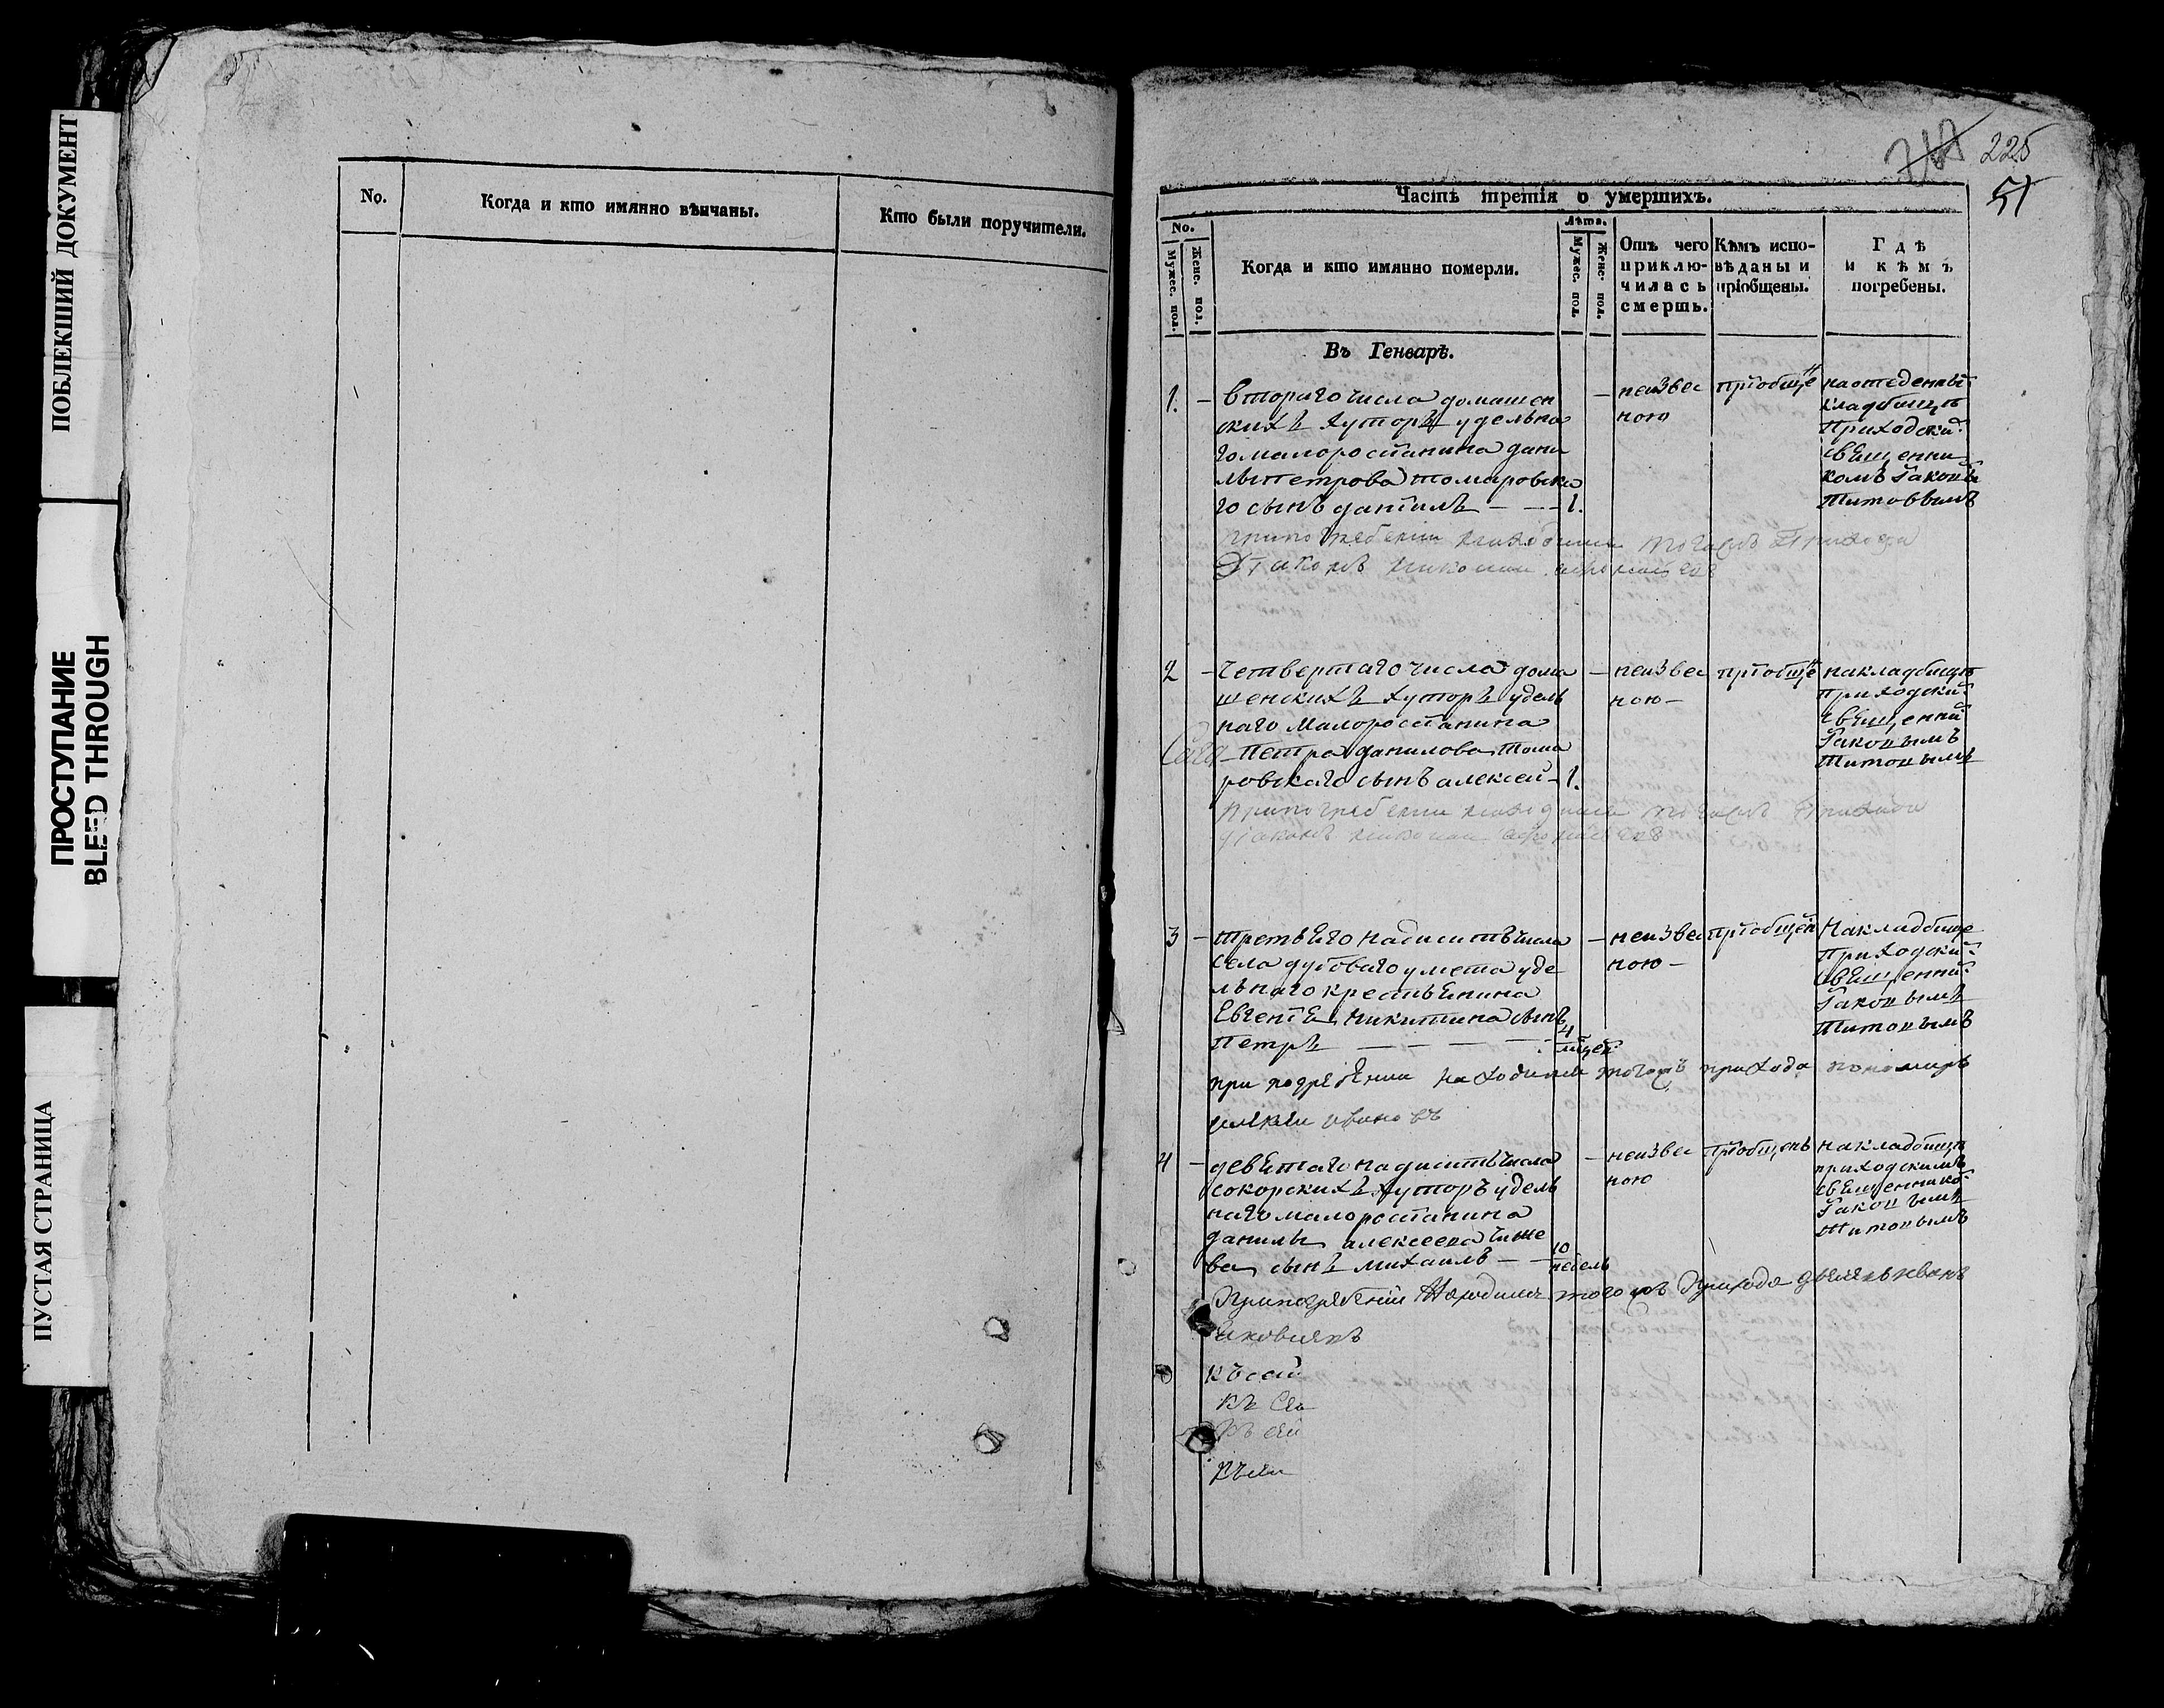 ПОБЛЕКШИЙ ДОКУМЕНТ
ПРОСТУПАНИЕ
BLEED THROUGH
ПУСТАЯ СТРАНИЦА
No.
Когда и кто имянно вѣнчаны.
Кто были поручители.
225
51
Часть третія о умершихъ.
No.
Мужес. пол.
Женс. пол.
Когда и кто имянно померли.
Лѣта.
Мужес. пол.
Женс. пол.
Отъ чего
приклю-
чилась
смерть.
Кѣмъ испо-
вѣданы и
пріобщены.
Гдѣ
и кѣмъ
погребены.
Въ Генварѣ.
1. – втораго числа домашен
скихъ хуторъ удельна
го малоросіянина дани
лы петрова томаровска
го сынъ даніилъ – – – 1.
– неизвес
ною
пріобще
н
на отведенный
кладбищѣ
Приходский
свѣщенни
комъ Іаковъ
Титоввымъ
при погребении находился тогожъ Прихода
Діаконъ николаи
2 – четвертаго числа дома
шенскихъ хуторъ удель
наго малоросіянина
петра данилова тома
ровскаго сынъ алексей – 1.
– неизвес
ною –
пріобще
н
на кладбищѣ
приходский
свѣщенний
Іаковымъ
Титовымъ
при погребении находился тогожъ Прихода
діаконъ николаи
3 – третьѣго надцитъ числа
села дубоваго умета уде
льнаго крестьѣнина
Евгеніѣ никитина сынъ
петръ – – – –
4
мѣсец
– неизвес
ною –
пріобщен
На кладбище
Приходский
свѣщенний
Іаковымъ
Титовымъ
при подребѣнии находился тогожъ прихода пономаръ
ивановъ
4 – девѣтаго надцитъ числа
сокорскихъ хуторъ удель
наго малоросіянина
данилы алексеева чише
ва сынъ михаилъ – –
10
недель
– неизвес
ною
пріобщенъ
на кладбищѣ
приходскимъ
свѣщеннико
Іаковымъ
Титовымъ
При погребѣнии Находился тогожъ Прихода дьячекъ иванъ
Яковлевъ
къ сей
къ сей
къ сей
къ сеи